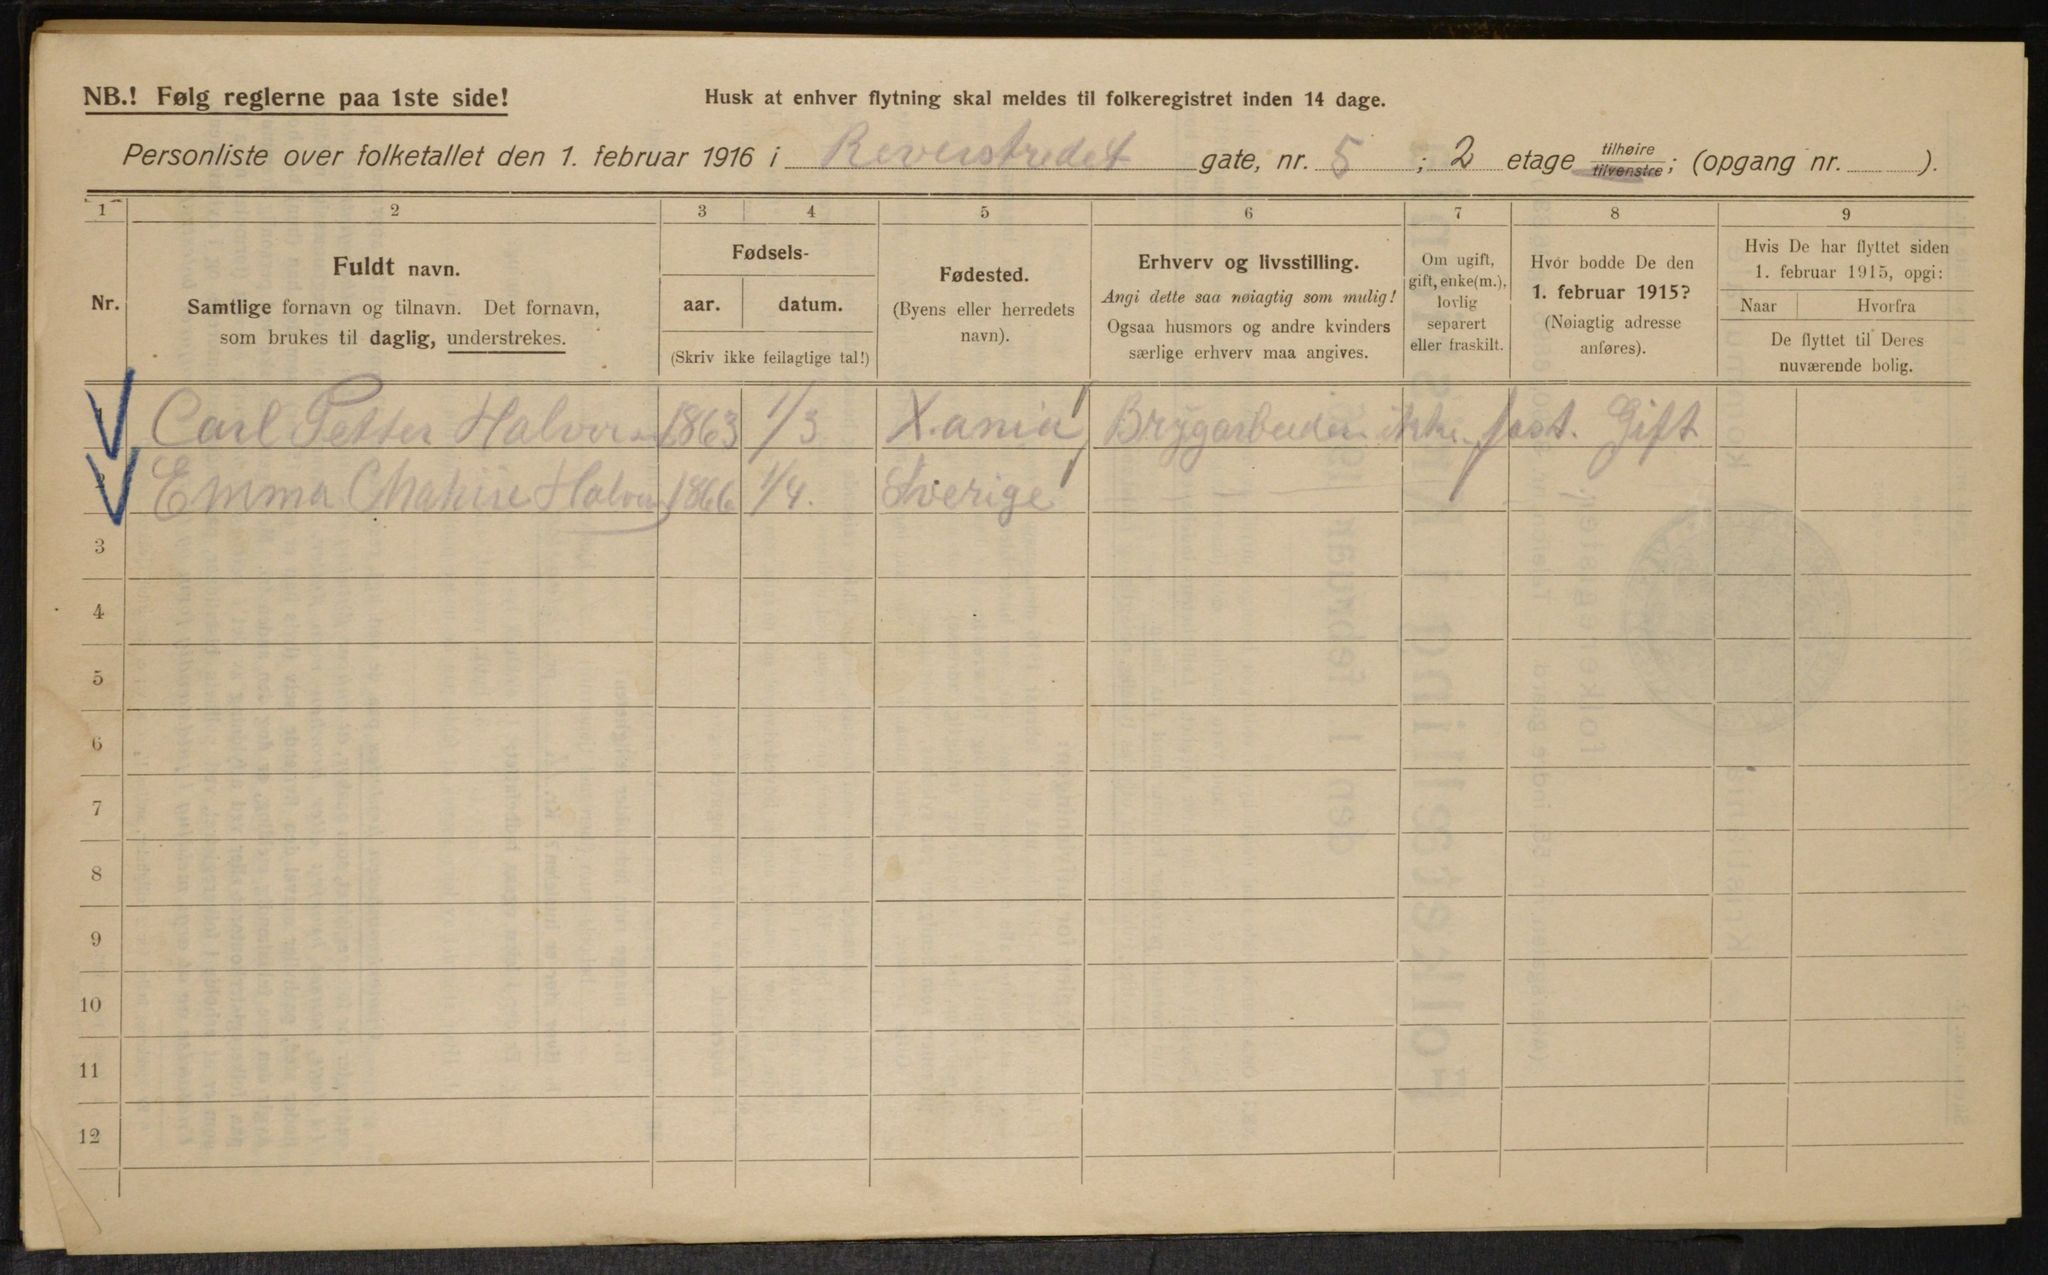 NB.! Følg reglerne paa 1ste side!
Husk at enhver flytning skal meldes til folkeregistret inden 14 dage.
Personliste over folketallet den 1. februar 1916 i Reverstredet gate, nr. 5 ; 2 etage tilhøire tilvenstre; (opgang nr. ).
1 2 3 4 5 6 7 8 9
Nr.
Fuldt navn.
Samtlige fornavn og tilnavn. Det fornavn,
som brukes til daglig, understrekes.
Fødsels-
aar. datum.
(Skriv ikke feilagtige tal!)
Fødested.
(Byens eller herredets
navn).
Erhverv og livsstilling.
Angi dette saa nøiagtig som mulig!
Ogsaa husmors og andre kvinders
særlige erhverv maa angives.
Om ugift,
gift, enke(m.),
lovlig
separert
eller fraskilt.
Hvor bodde De den
1. februar 1915?
(Nøiagtig adresse
anføres).
Hvis De har flyttet siden
1. februar 1915, opgi:
Naar Hvorfra
De flyttet til Deres
nuværende bolig.
Carl Petter 1863 1/3 X.ania Brygarbeider ikke fast. Gift
Emma 1866 1/4. Sverige
3
4
5
6
7
8
9
10
11
12